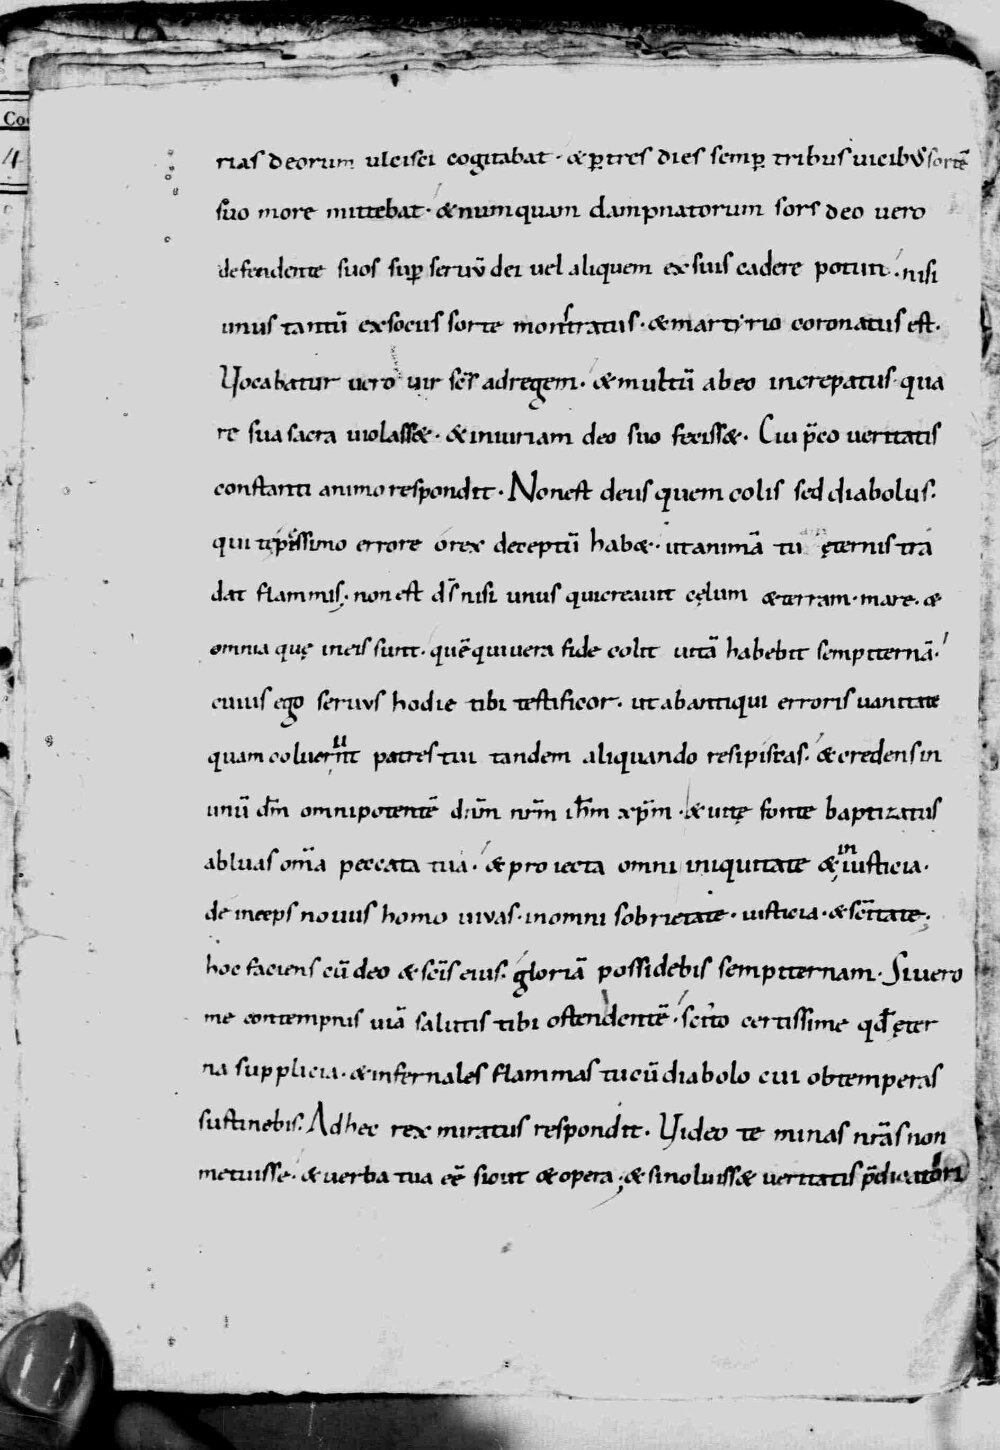 Co
4
rias deorum ulcisci cogitabat · & ꝑ tres dies semꝑ tribus uicibꝰ sortē
suo more mittebat · & numquam dampnatorum sors deo uero
defendente suos suꝑ seruū dei uel aliquem ex suis cadere potuit · nisi
unus tantū ex sociis sorte monstratus · & martyrio coronatus est ·
Vocabatur uero uir scs̄ ad regem · & multū ab eo increpatus · qua
re sua sacra uiolass& · & iniuriam deo suo feciss& · Cui p̄co ueritatis
constanti animo respondit · Non est deus quem colis sed diabolus ·
qui te pessimo errore o rex deceptū hab& · ut animā tuā ęternis tra
dat flammis ; non est ds̄ nisi unus qui creauit cęlum & terram · mare · &
omnia quę in eis sunt · quē qui uera fide colit uitā habebit sempiternā ·
cuius ego seruus hodie tibi testificor · ut ab antiqui erroris uanitate
quam coluerunt patres tui tandem aliquando resipiscas · & credens in
unū dm̄ omnipotentē dnm̄ nrm̄ ihm̄ xpm̄ · & uitę fonte baptizatus
abluas om̄a peccata tua · & proiecta omni iniquitate & iniusticia ·
deinceps nouus homo uiuas · in omni sobrietate · iusticia · & scītate ;
hoc faciens cū deo & scīs eius · gloriā possidebis sempiternam · Si uero
me contempnis uiā salutis tibi ostendentē · scito certissime qđ ęter
na supplicia · & infernales flammas tu cū diabolo cui obtemperas
sustinebis · Ad hec rex miratus respondit · Video te minas nrās non
metuisse · & uerba tua eē sicut & opera ; & si noluiss& ueritatis p̄dicatori